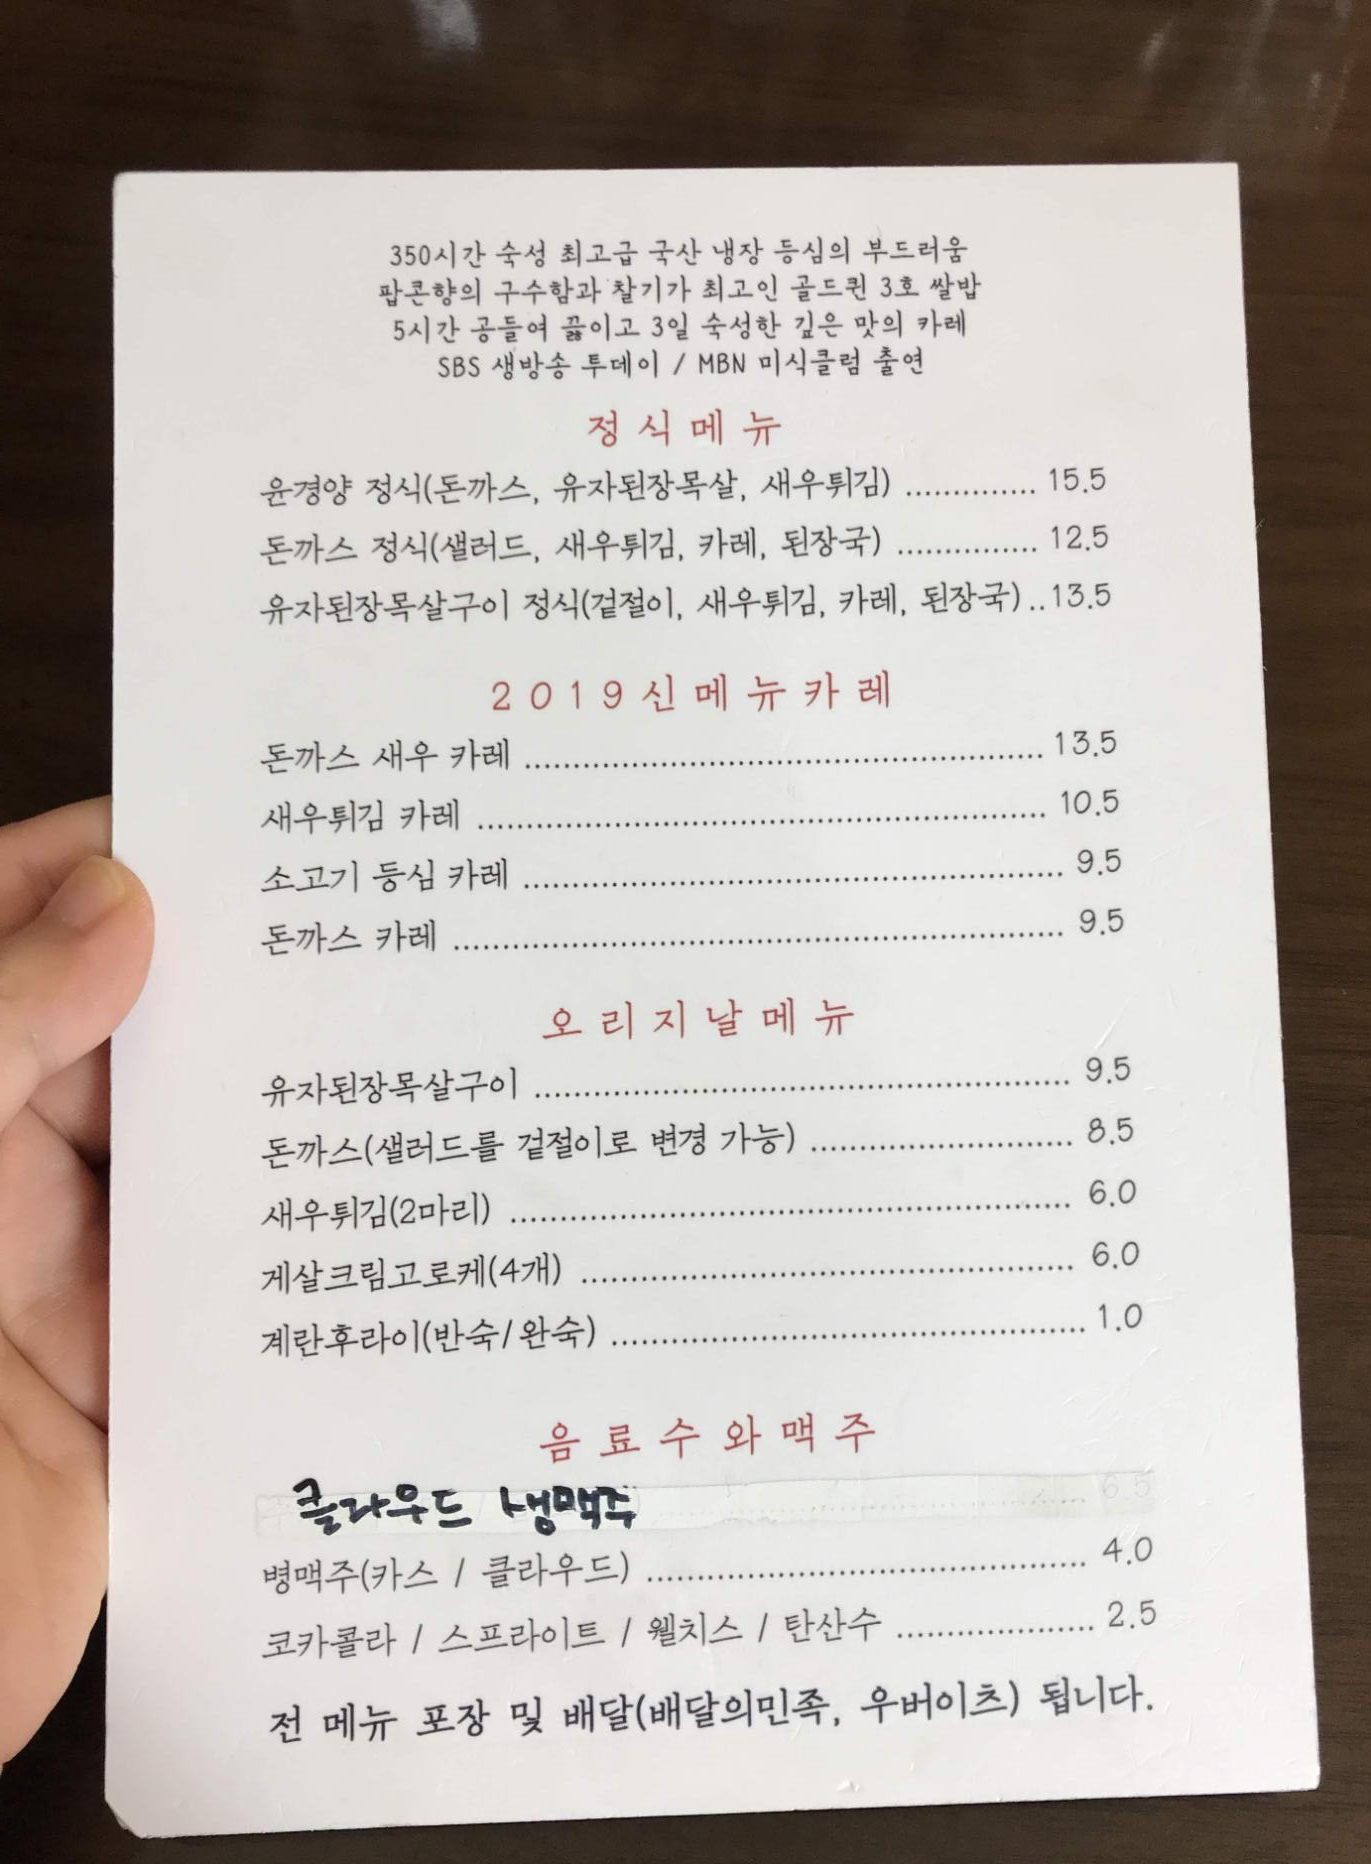 350시간 숙성 최고급 국산 냉장 등심의 부드러움
팝콘향의 구수함과 찰기가 최고인 골드퀸 3호 쌀밥
5시간 공들여 끓이고 3일 숙성한 깊은 맛의 카레
SBS 생방송 투데이 / MBN 미식클럽 출연
정식메뉴
윤경양 정식(돈까스, 유자된장목살, 새우튀김) .............. 15.5
돈까스 정식(샐러드, 새우튀김, 카레, 된장국) ............... 12.5
유자된장목살구이 정식(겉절이, 새우튀김, 카레, 된장국)..13.5
2019신메뉴카레
돈까스 새우 카레 ...................................................... 13.5
새우튀김 카레 .......................................................... 10.5
소고기 등심 카레 ....................................................... 9.5
돈까스 카레 ............................................................... 9.5
오리지날메뉴
유자된장목살구이 ....................................................... 9.5
돈까스(샐러드를 겉절이로 변경 가능) ........................... 8.5
새우튀김(2마리) ......................................................... 6.0
게살크림고로케(4개) .................................................. 6.0
계란후라이(반숙/완숙) ................................................ 1.0
음료수와맥주
클라우드 생맥주 6.5
병맥주(카스 / 클라우드) ............................................. 4.0
코카콜라 / 스프라이트 / 웰치스 / 탄산수 .................... 2.5
전 메뉴 포장 및 배달(배달의민족, 우버이츠) 됩니다.